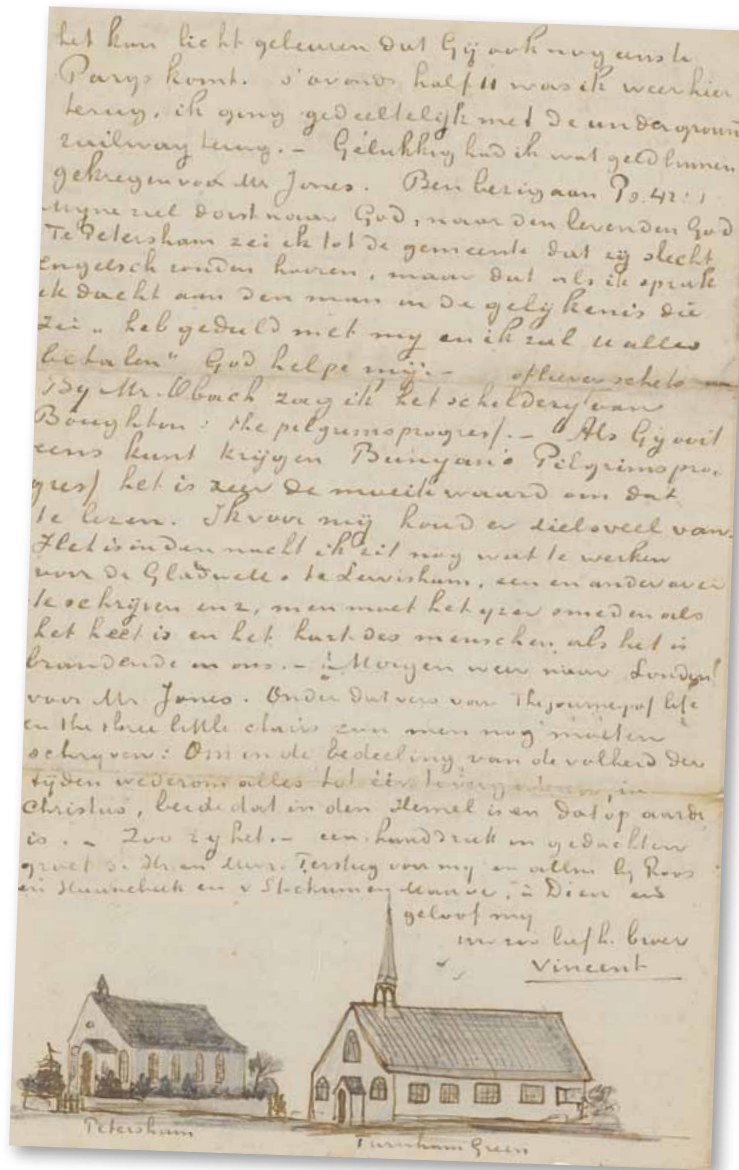 het kan licht gebeuren dat Gij ook nog eens te
Parys komt. s'avonds half 11 was ik weer hier
terug, ik ging gedeeltelijk met de underground
railway terug. – Gelukkig had ik wat geld binnen
gekregen voor Mr Jones. Ben bezig aan Ps. 42:1
Myne ziel dorst naar God, naar den levenden God
Te Petersham zei ik tot de gemeente dat zij slecht
Engelsch zouden hooren, maar dat als ik sprak
ik dacht aan den man in de gelijkenis die
zei „heb geduld met mij en ik zal U alles
betalen" God helpe mij. –
By Mr. Obach zag ik het schildery van
Boughton: the pilgrimsprogress. – Als Gij ooit
eens kunt krijgen Bunyan's Pilgrimspro-
gress het is zeer de moeite waard om dat
te lezen. Ik voor mij houd er zielsveel van.
Het is in den nacht ik zit nog wat te werken
voor de Gladwells te Lewisham, een en ander over
te schrijven enz, men moet het yzer smeden als
het heet is en het hart des menschen als het is
brandende in ons. – Morgen weer naar Londen
voor Mr Jones. Onder dat vers van The journey of life
en the three little chairs zou men nog moeten
schryven: Om in de bedeeling van de volheid der
tijden wederom alles tot één te vergaderen, in
Christus, beide dat in den Hemel is en dat op aarde
is. – Zoo zy het. – een handdruk in gedachten
groet de Hr. en Mevr. Tersteeg voor my en allen bij Roos
en Haanebeek en v Stockum en Mauve, à Dieu en
geloof my
uw zoo liefh. broer
Vincent
Petersham
Turnham Green